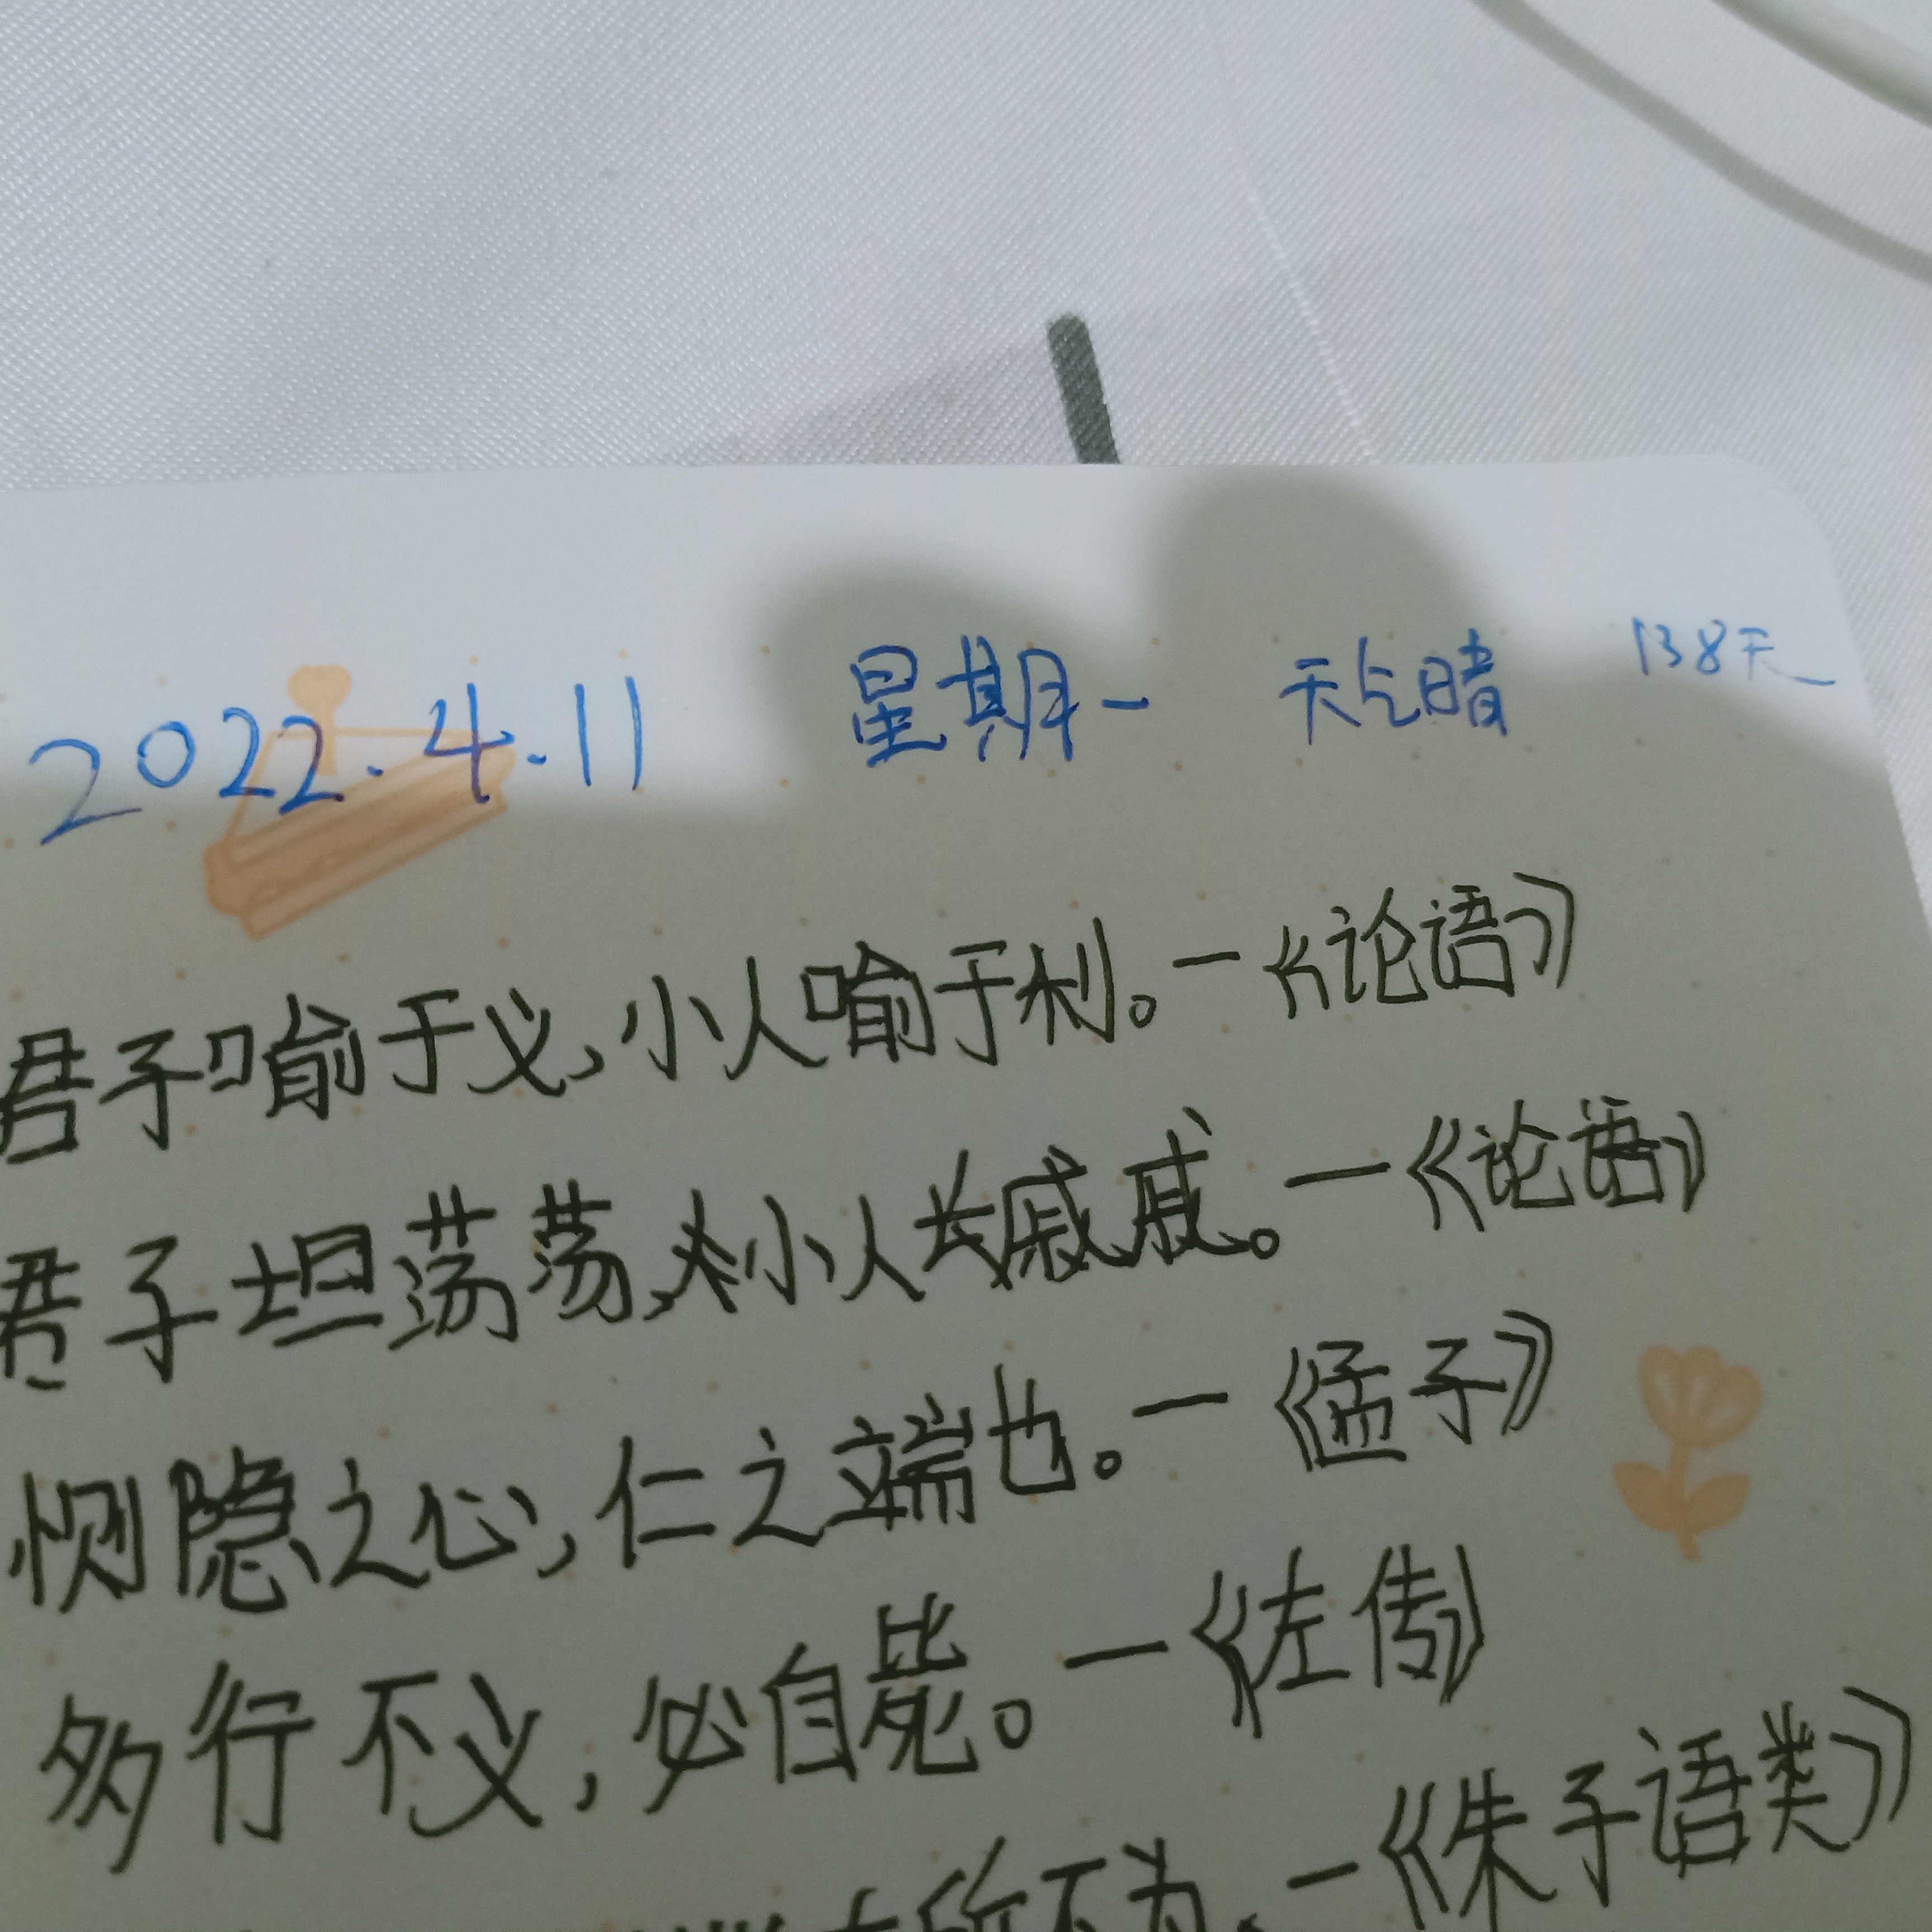 2022.4.11 星期一 天气晴 138天
君子喻于义,小人喻于利。—《论语》
君子坦荡荡,小人长戚戚。—《论语》
恻隐之心,仁之端也。—《孟子》
多行不义,必自毙。—《左传》
所不为。—《朱子语类》